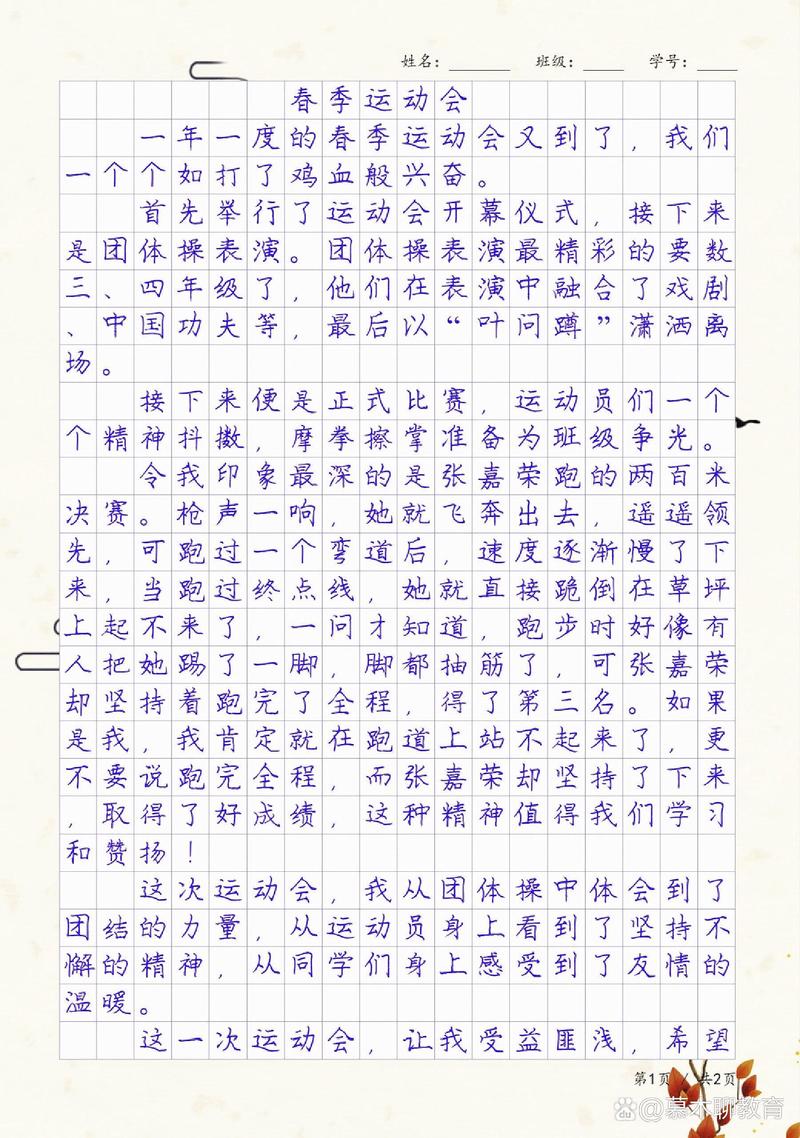 姓名：______ 班级：____ 学号：____
春季运动会
一年一度的春季运动会又到了，我们
一个个如打了鸡血般兴奋。
首先举行了运动会开幕仪式，接下来
是团体操表演。团体操表演最精彩的要数
三、四年级了，他们在表演中融合了戏剧
、中国功夫等，最后以“叶问蹲”潇洒离
场。
接下来便是正式比赛，运动员们一个
个精神抖擞，摩拳擦掌准备为班级争光。
令我印象最深的是张嘉荣跑的两百米
决赛。枪声一响，她就飞奔出去，遥遥领
先，可跑过一个弯道后，速度逐渐慢了下
来，当跑过终点线，她就直接跪倒在草坪
上起不来了，一问才知道，跑步时好像有
人把她踢了一脚，脚都抽筋了，可张嘉荣
却坚持着跑完了全程，得了第三名。如果
是我，我肯定就在跑道上站不起来了，更
不要说跑完全程，而张嘉荣却坚持了下来
，取得了好成绩，这种精神值得我们学习
和赞扬！
这次运动会，我从团体操中体会到了
团结的力量，从运动员身上看到了坚持不
懈的精神，从同学们身上感受到了友情的
温暖。
这一次运动会，让我受益匪浅，希望
第1页 / 共2页
@慕木聊教育